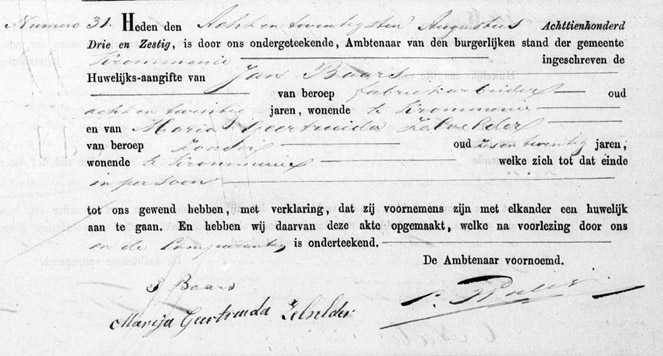 Numero 31. Heden den Acht en twintigsten Augustus Achttienhonderd
Drie en Zestig, is door ons ondergeteekende, Ambtenaar van den burgerlijken stand der gemeente
Krommenie ingeschreven de
Huwelijks-aangifte van Jan Baars
van beroep fabriekarbeider oud
acht en twintig jaren, wonende te Krommenie
en van Maria Geertruida Zelvelder
van beroep zonder oud zes en twintig jaren,
wonende te Krommenie welke zich tot dat einde
in persoon
tot ons gewend hebben, met verklaring, dat zij voornemens zijn met elkander een huwelijk
aan te gaan. En hebben wij daarvan deze akte opgemaakt, welke na voorlezing door ons
en de Comparanten is onderteekend.
De Ambtenaar voornoemd.
J Baars
Marija Geertruida Zelvelder